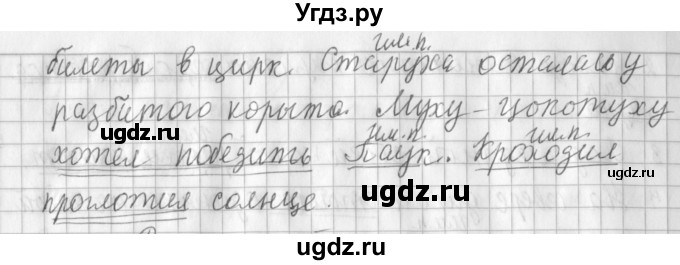 Угдз.ру
им.п.
билеты в цирк. Старуха осталась у
разбитого корыта. Муху-цокотуху
ugdz.ru ugdz.ru
им.п. им.п.
хотел победить Паук. Крокодил
ugdz.ru ugdz.ru
проглотил солнце.
ugdz.ru
ugdz.ru